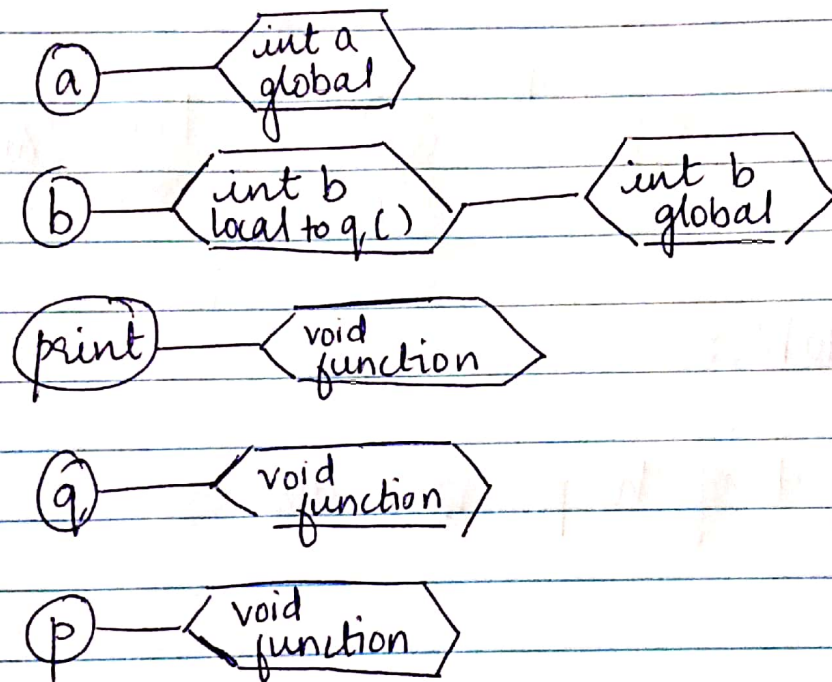 a
int a
global
b
int b
local to q()
int b
global
print
void
function
q
void
function
p
void
function